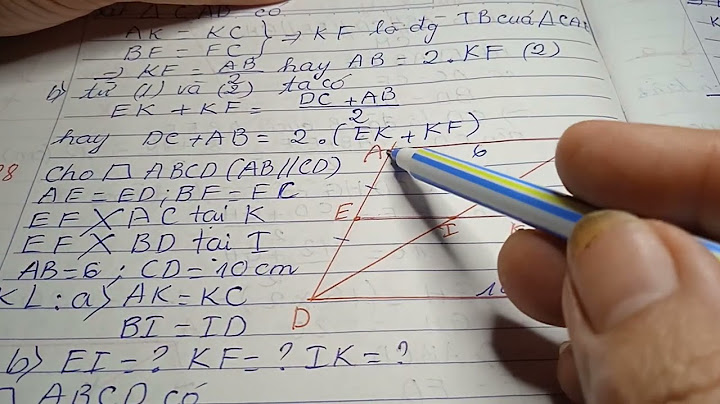 △CAD có
AK = KC
BF = FC } ⇒ KF là đg TB của △CA
⇒ KF = AB/2 hay AB = 2.KF (2)
b) từ (1) và (2) ta có
EK + KF = DC + AB/2
hay DC + AB = 2.(EK + KF)
28 Cho □ ABCD (AB//CD)
AE = ED ; BF = FC
EF ╳ AC tại K
EF ╳ BD tại I
AB = 6 ; CD = 10 cm
KL : a) AK = KC
BI = ID
b) EI = ? KF = ? IK = ?
□ ABCD có
A
6
E
I
K
D